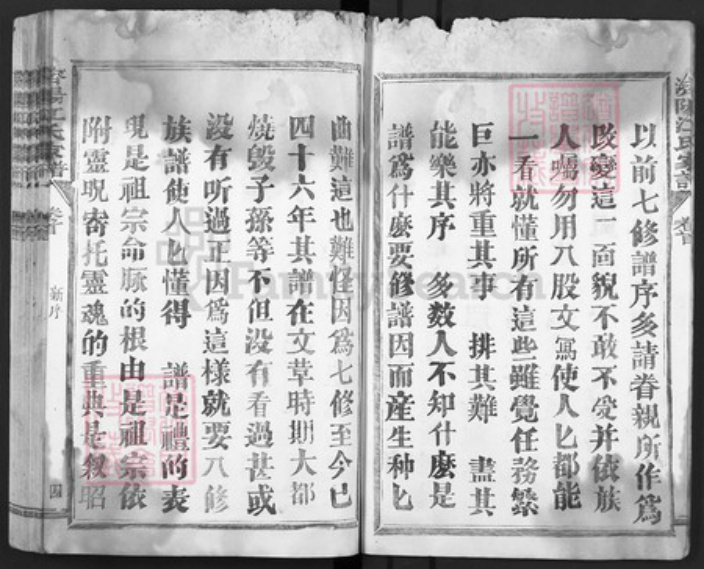 濟陽江氏家譜 卷首
以前七修譜序多請眷親所作爲
改變這一面貌不敢不受并依族
人囑勿用八股文寫使人匕都能
一看就懂所有這些雖覺任務繁
巨亦將重其事 排其難 盡其
能樂其序 多数人不知什麽是
譜爲什麽要修譜因而産生种匕
曲難這也難怪因爲七修至今已
四十六年其譜在文草時期大都
燒毁子孫等不但没有看過甚或
没有听過正因爲這樣就要八修
族譜使人匕懂得 譜是禮的表
現是祖宗命脉的根由是祖宗依
附靈呪寄托靈魂的重典是叙昭
濟陽江氏家譜 卷首 新序 四
FamilySearch